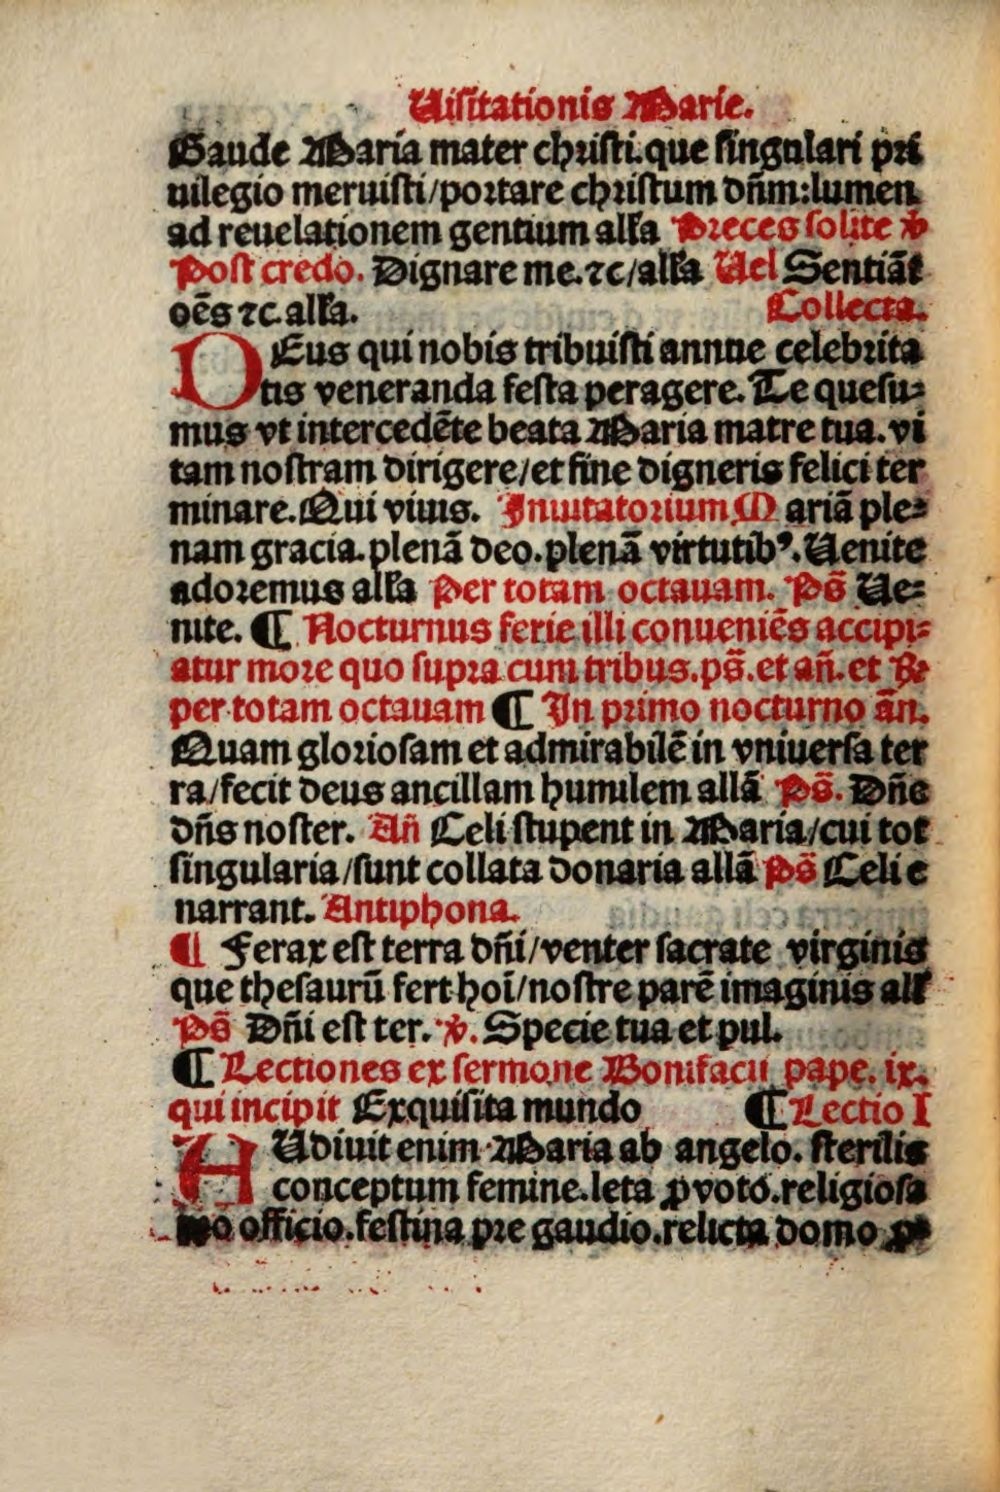 Uisitationis Marie.
Gaude Maria mater christi.que singulari pri
uilegio meruisti/portare christum dn̄m:lumen
ad reuelationem gentium alľa Preces solite ꝟ
Post credo. Dignare me.⁊c/alľa Uel Sentiāt
oēs ⁊c.alľa. Collecta.
DEus qui nobis tribuisti annue celebrita
tis veneranda festa peragere. Te quesu⸗
mus vt intercedēte beata Maria matre tua. vi
tam nostram dirigere/et fine digneris felici ter
minare. Qui viuis. Inuitatorium M ariā ple⸗
nam gracia.plenā deo.plenā virtutibꝰ. Uenite
adoremus alľa Per totam octauam. Ps̄ Ue⸗
nite. ¶ Nocturnus ferie illi conueniēs accipi⸗
atur more quo supra cum tribus.ps̄.et an̄.et ℟
per totam octauam ¶ In primo nocturno ān.
Quam gloriosam et admirabilē in vniuersa ter
ra/fecit deus ancillam humilem allā Ps̄. Dn̄e
dn̄s noster. An̄ Celi stupent in Maria/cui tot
singularia/sunt collata donaria allā Ps̄ Celi e
narrant. Antiphona.
¶ Ferax est terra dn̄i/venter sacrate virginis
que thesaurū fert hoī/nostre parē imaginis all
Ps̄ Dn̄i est ter. ꝟ. Specie tua et pul.
¶ Lectiones ex sermone Bonifacii pape. ix.
qui incipit Exquisita mundo ¶ Lectio I
AUdiuit enim Maria ab angelo. sterilis
conceptum femine.leta ꝓ voto.religiosa
officio.festina pre gaudio.relicta domo